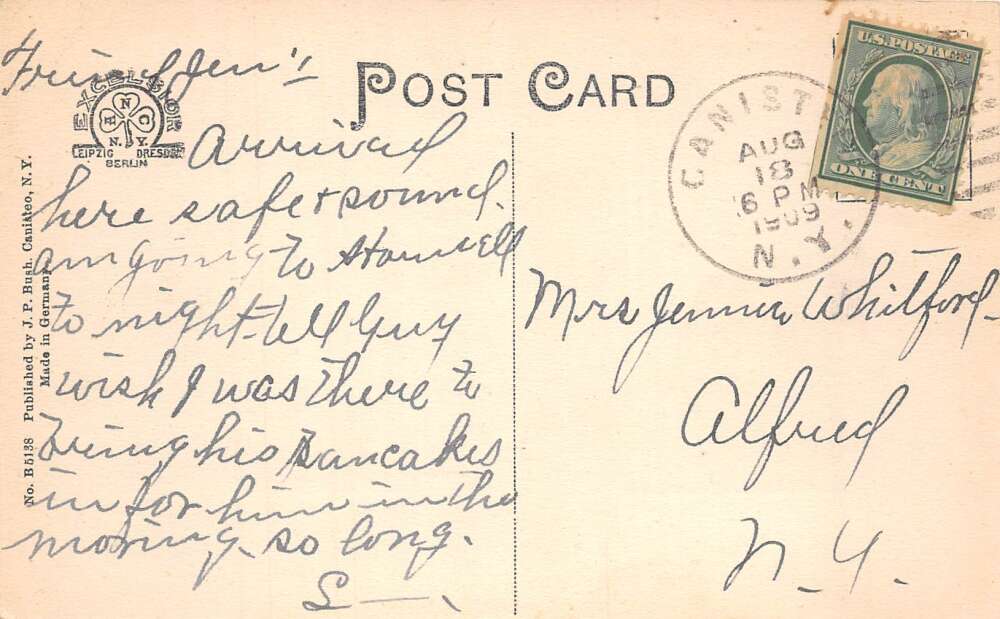 POST CARD
EXCELSIOR
N
H C
N.Y.
LEIPZIG DRESDEN
BERLIN
No. B5138 Published by J. P. Bush. Canisteo, N.Y.
Made in Germany
Friend Jen's
Arrived
here safe + sound.
am going to Hornell
to night. tell Guy
wish I was there to
bring his pancakes
in for him in the
moring. so long.
S—.
CANIST
AUG
18
6 PM
1909
N.Y.
U.S. POSTAGE
ONE CENT
Mrs Jennie Whitford
Alfred
N.Y.